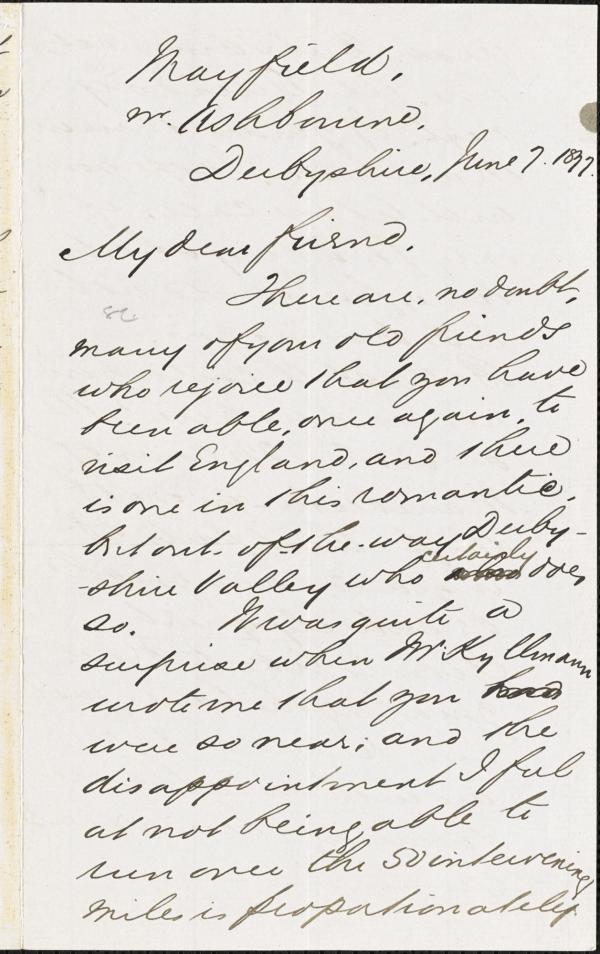 Mayfield,
nr. Ashbourne,
Derbyshire, June 7. 1897.
My dear friend,
There are, no doubt,
many of your old friends
who rejoice that you have
been able, once again, to
visit England, and there
is one in this romantic,
but out-of-the-way Derby-
-shire Valley who certainly does
so. It was quite a
surprise when Mr. Kyllmann
wrote me that you
were so near; and the
disappointment I feel
at not being able to
run over the 50 intervening
miles is proportionately